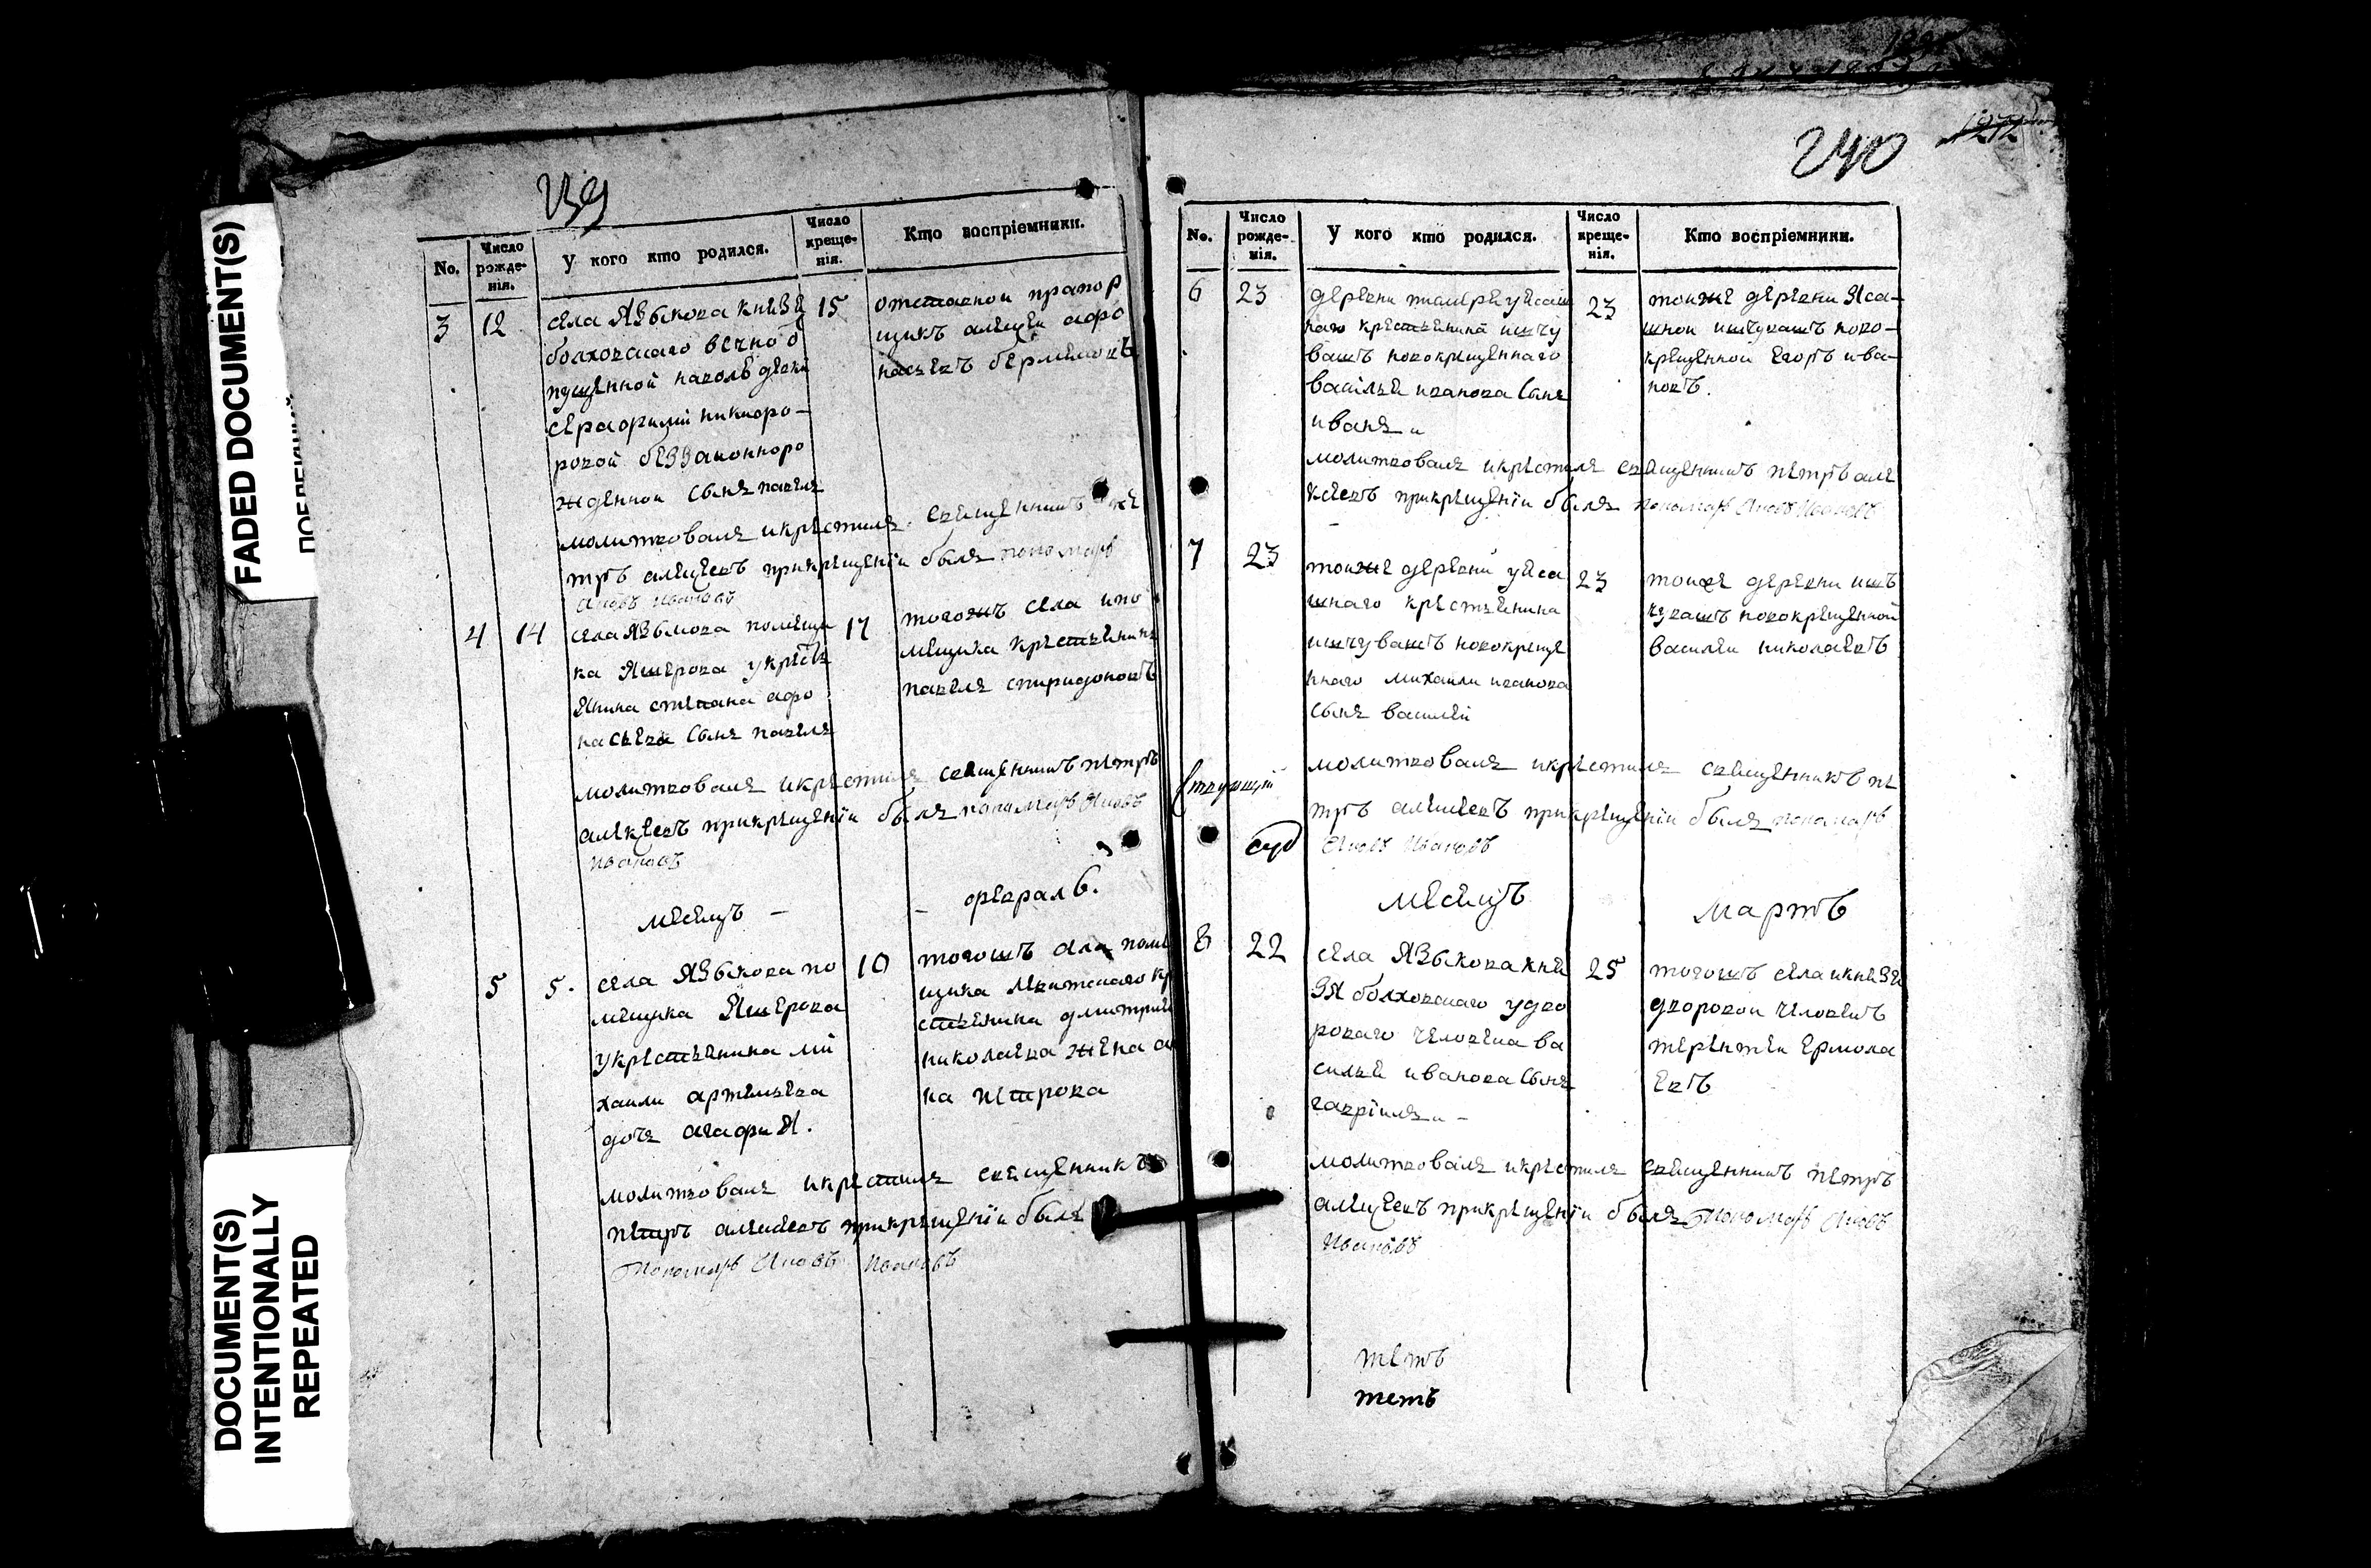 FADED DOCUMENT(S)
DOCUMENT(S)
INTENTIONALLY
REPEATED
239
No.
Число
рожде-
нія.
У кого кто родился.
Число
креще-
нія.
Кто воспріемники.
3 12
села Языкова князя
болховскаго вечно о
пущенной наволю девки
серафимы никифо-
ровой беззаконноро
жденной сынъ павелъ
15
отставной прапор
щикъ алексеи афо
насьевъ
молитвовалъ икрестилъ священникъ пе
тръ алексеевъ прикрещеніи былъ пономарь
Яковъ Ивановъ
4 14
села Языкова помещи
ка Яшерова укрестья
янина степана афо
насьева сынъ павелъ
17
тогожъ села ипо
мещика крестьянинъ
павелъ спиридоновъ
молитвовалъ икрестилъ священникъ петръ
алексеевъ прикрещеніи былъ пономарь Яковъ
Ивановъ
месяцъ - - февраль.
5 5.
села Языкова по
мещика Яшерова
укрестьянина ми
хаилы артемьева
дочь агафия.
10
тогошъ села поме
щика крестьянина дмитрия
николаева жена ан
на петрова
молитвовалъ икрестилъ священникъ
петръ алексеевъ прикрещеніи былъ
Пономарь Яковъ Ивановъ
240
1272
No.
Число
рожде-
нія.
У кого кто родился.
Число
креще-
нія.
Кто воспріемники.
6 23
деревни уясаш
наго крестьянина ишчу
вашъ новокрещеннаго
василья иванова сынъ
иванъ
23
тойже деревни Яса-
шной ишчувашъ ново-
крещенной егоръ ива-
новъ.
молитвовалъ икрестилъ священникъ петръ але
ксеевъ прикрещеніи былъ пономарь Яковъ Ивановъ
7 23
тойже деревни уяса
шнаго крестьянина
ишчувашъ новокреще
ннаго михаилы иванова
сынъ василей
23
тойже деревни ишъ
чувашъ новокрещенной
василеи николаевъ
молитвовалъ икрестилъ священникъ пе
тръ алексеевъ прикрещеніи былъ пономарь
Яковъ Ивановъ
месяцъ мартъ
8 22
села Языкова кня
зя болховскаго удво
роваго человека ва
силья иванова сынъ
гавріилъ -
25
тогошъ села икнязя
дворовои человекъ
терентеи ермола
евъ
молитвовалъ икрестилъ священникъ петръ
алексеевъ прикрещеніи былъ Пономарь Яковъ
Ивановъ